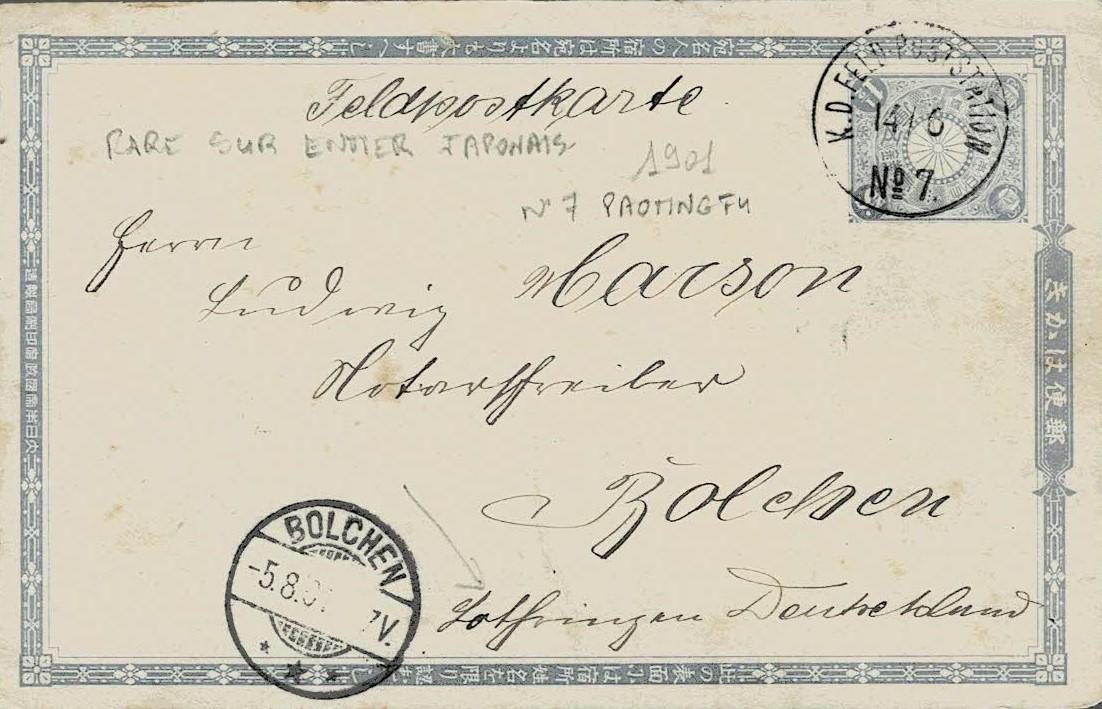 Feldpostkarte
RARE SUR ENTIER JAPONAIS
1901
N° 7 PAOTINGFU
K.D. FELD-POSTSTATION
14/6
No 7.
Herrn
Ludwig Marson
Notarschreiber
Bolchen
Lothringen Deutschland
BOLCHEN
-5.8.01
V.
郵便はかき